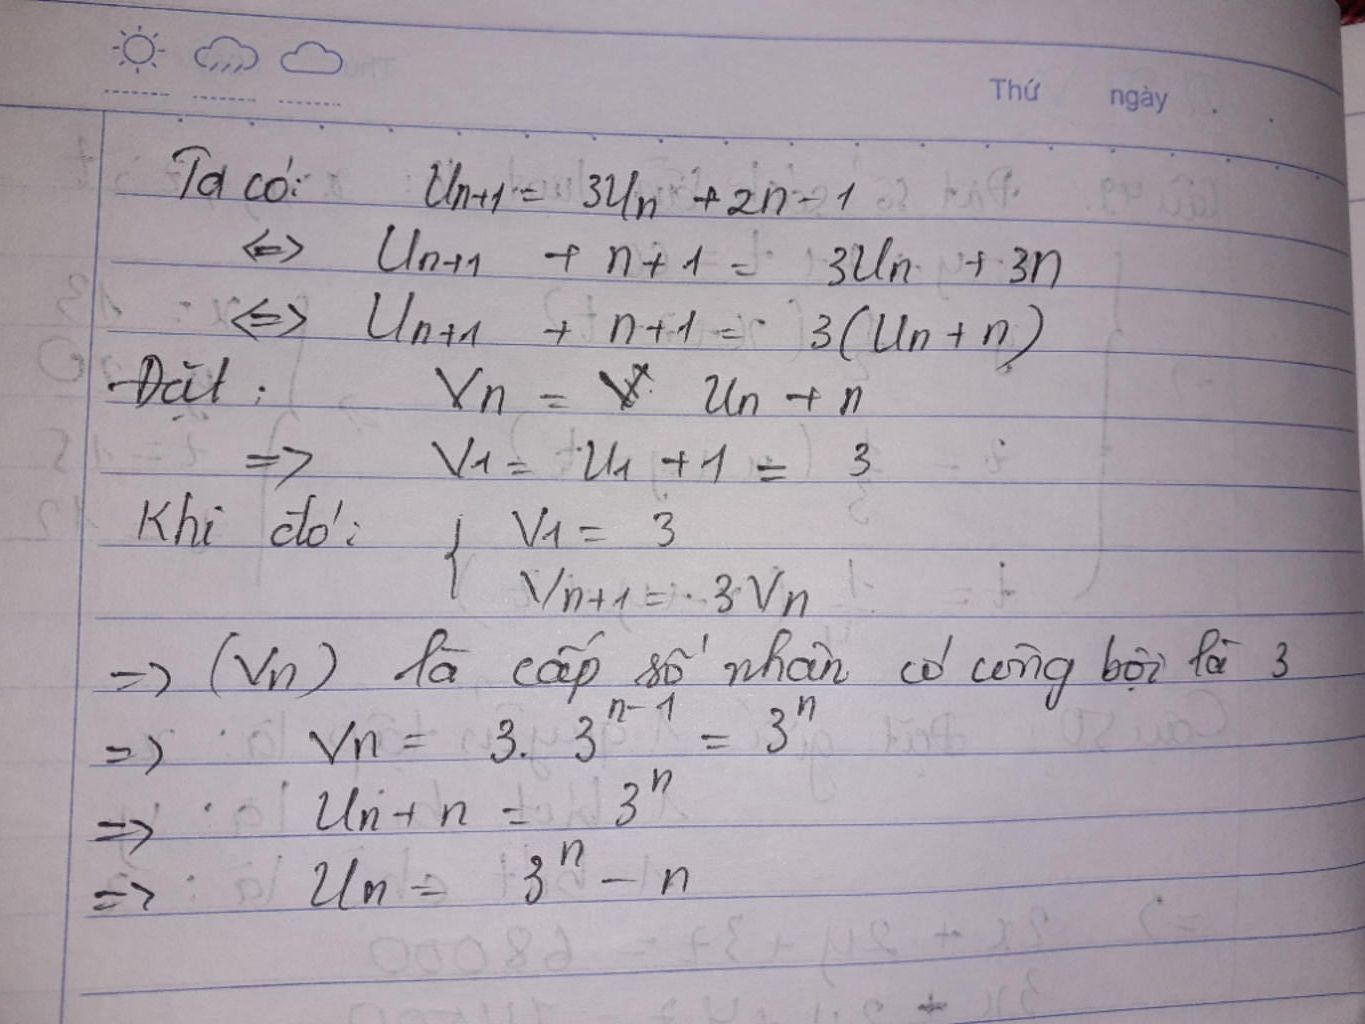 Thứ ngày
Ta có: Un+1 = 3Un + 2n - 1
<=> Un+1 + n+1 = 3Un + 3n
<=> Un+1 + n+1 = 3(Un + n)
Đặt: Vn = Un + n
=> V1 = U1 + 1 = 3
Khi đó: { V1 = 3
Vn+1 = 3Vn
=> (Vn) là cấp số nhân có công bội là 3
=> Vn = 3. 3^n-1 = 3^n
=> Un + n = 3^n
=> Un = 3^n - n